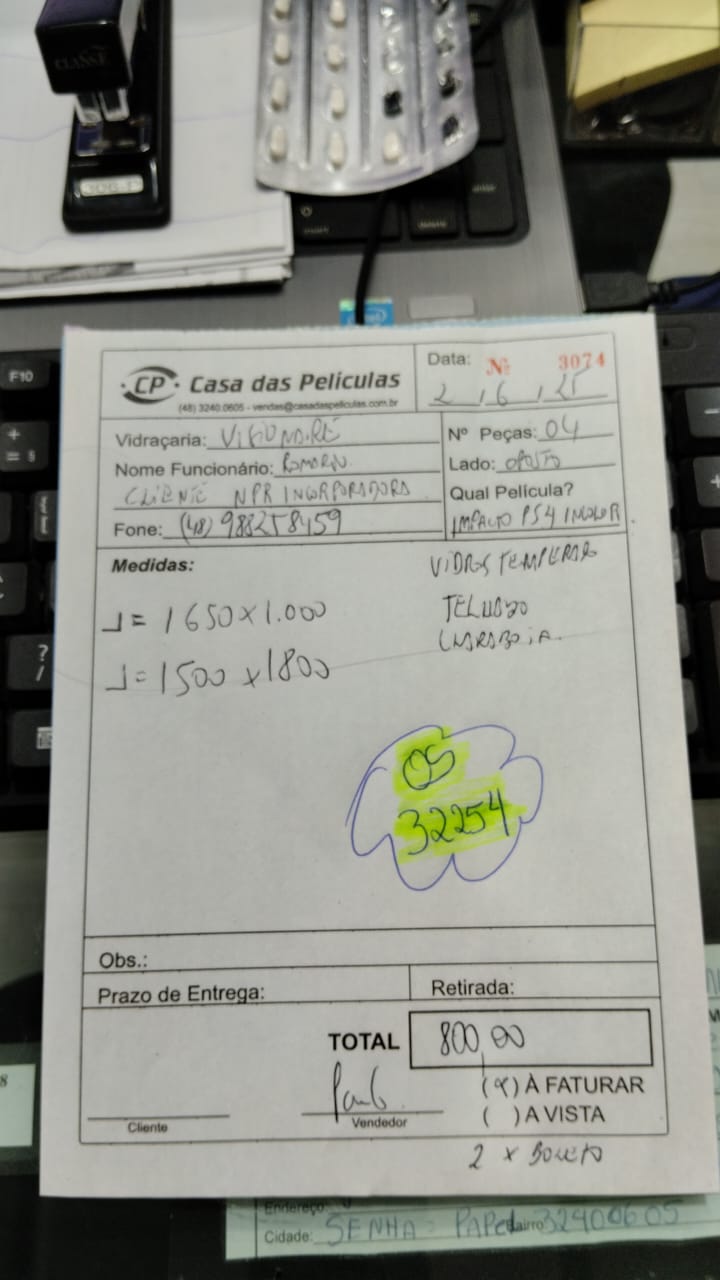 CLASSE
F10
CP Casa das Películas
(48) 3240.0605 - vendas@casadaspeliculas.com.br
Data: Nº 3074
2, 6, 25
Vidraçaria: VISIONAIRE
Nº Peças: 04
Nome Funcionário: ROMÁRIO
Lado: OPOSTO
CLIENTE NPR INCORPORADORA
Qual Película?
Fone: (48) 988258459
IMPACTO PS4 INCOLOR
Medidas:
VIDROS TEMPERADO
TELHADO
CLARABOIA.
1 = 1650 x 1.000
1 = 1500 x 1800
OS
32254
Obs.:
Prazo de Entrega:
Retirada:
TOTAL 800,00
(x) À FATURAR
( ) A VISTA
Cliente
Vendedor
2 x BOLETO
Endereço:
Cidade: SENHA: PAPEL Bairro 32400605